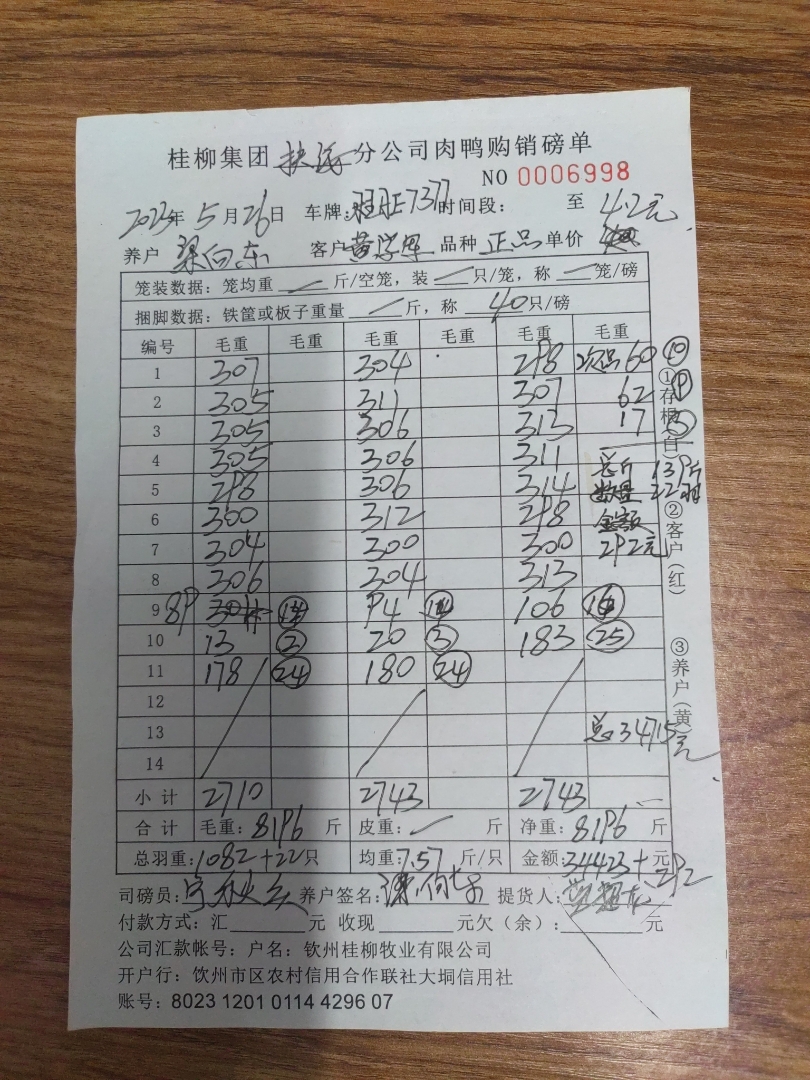 桂柳集团 扶绥 分公司肉鸭购销磅单
NO 0006998
2023年 5月26日 车牌: 7377 时间段: 至 4.2元
养户 梁向东 客户 黄学军 品种 正品 单价
笼装数据: 笼均重 — 斤/空笼, 装 — 只/笼, 称 — 笼/磅
捆脚数据: 铁筐或板子重量 — 斤, 称 40 只/磅
编号 毛重 毛重 毛重 毛重 毛重 毛重
1 307 304 298 次品60 ⑩
2 305 311 307 62 ⑨
3 305 306 313 17 ③
4 305 306 311 总斤 139斤
5 298 306 314 数量 22羽
6 300 312 298 金额
7 304 300 300 292元
8 306 304 313
9 89 94 106
10 13 ② 20 ③ 183 ㉕
11 178 ㉔ 180 ㉔
12
13 总34715元
14
小计 2710 2743 2743 —
合计 毛重: 8196 斤 皮重: — 斤 净重: 8196 斤
总羽重: 1082+22只 均重: 7.57 斤/只 金额: 34423+292元
司磅员: 养户签名: 提货人:
付款方式: 汇 元 收现 元欠(余): 元
公司汇款帐号: 户名: 钦州桂柳牧业有限公司
开户行: 饮州市区农村信用合作联社大垌信用社
账号: 8023 1201 0114 4296 07
①存根(白) ②客户(红) ③养户(黄)